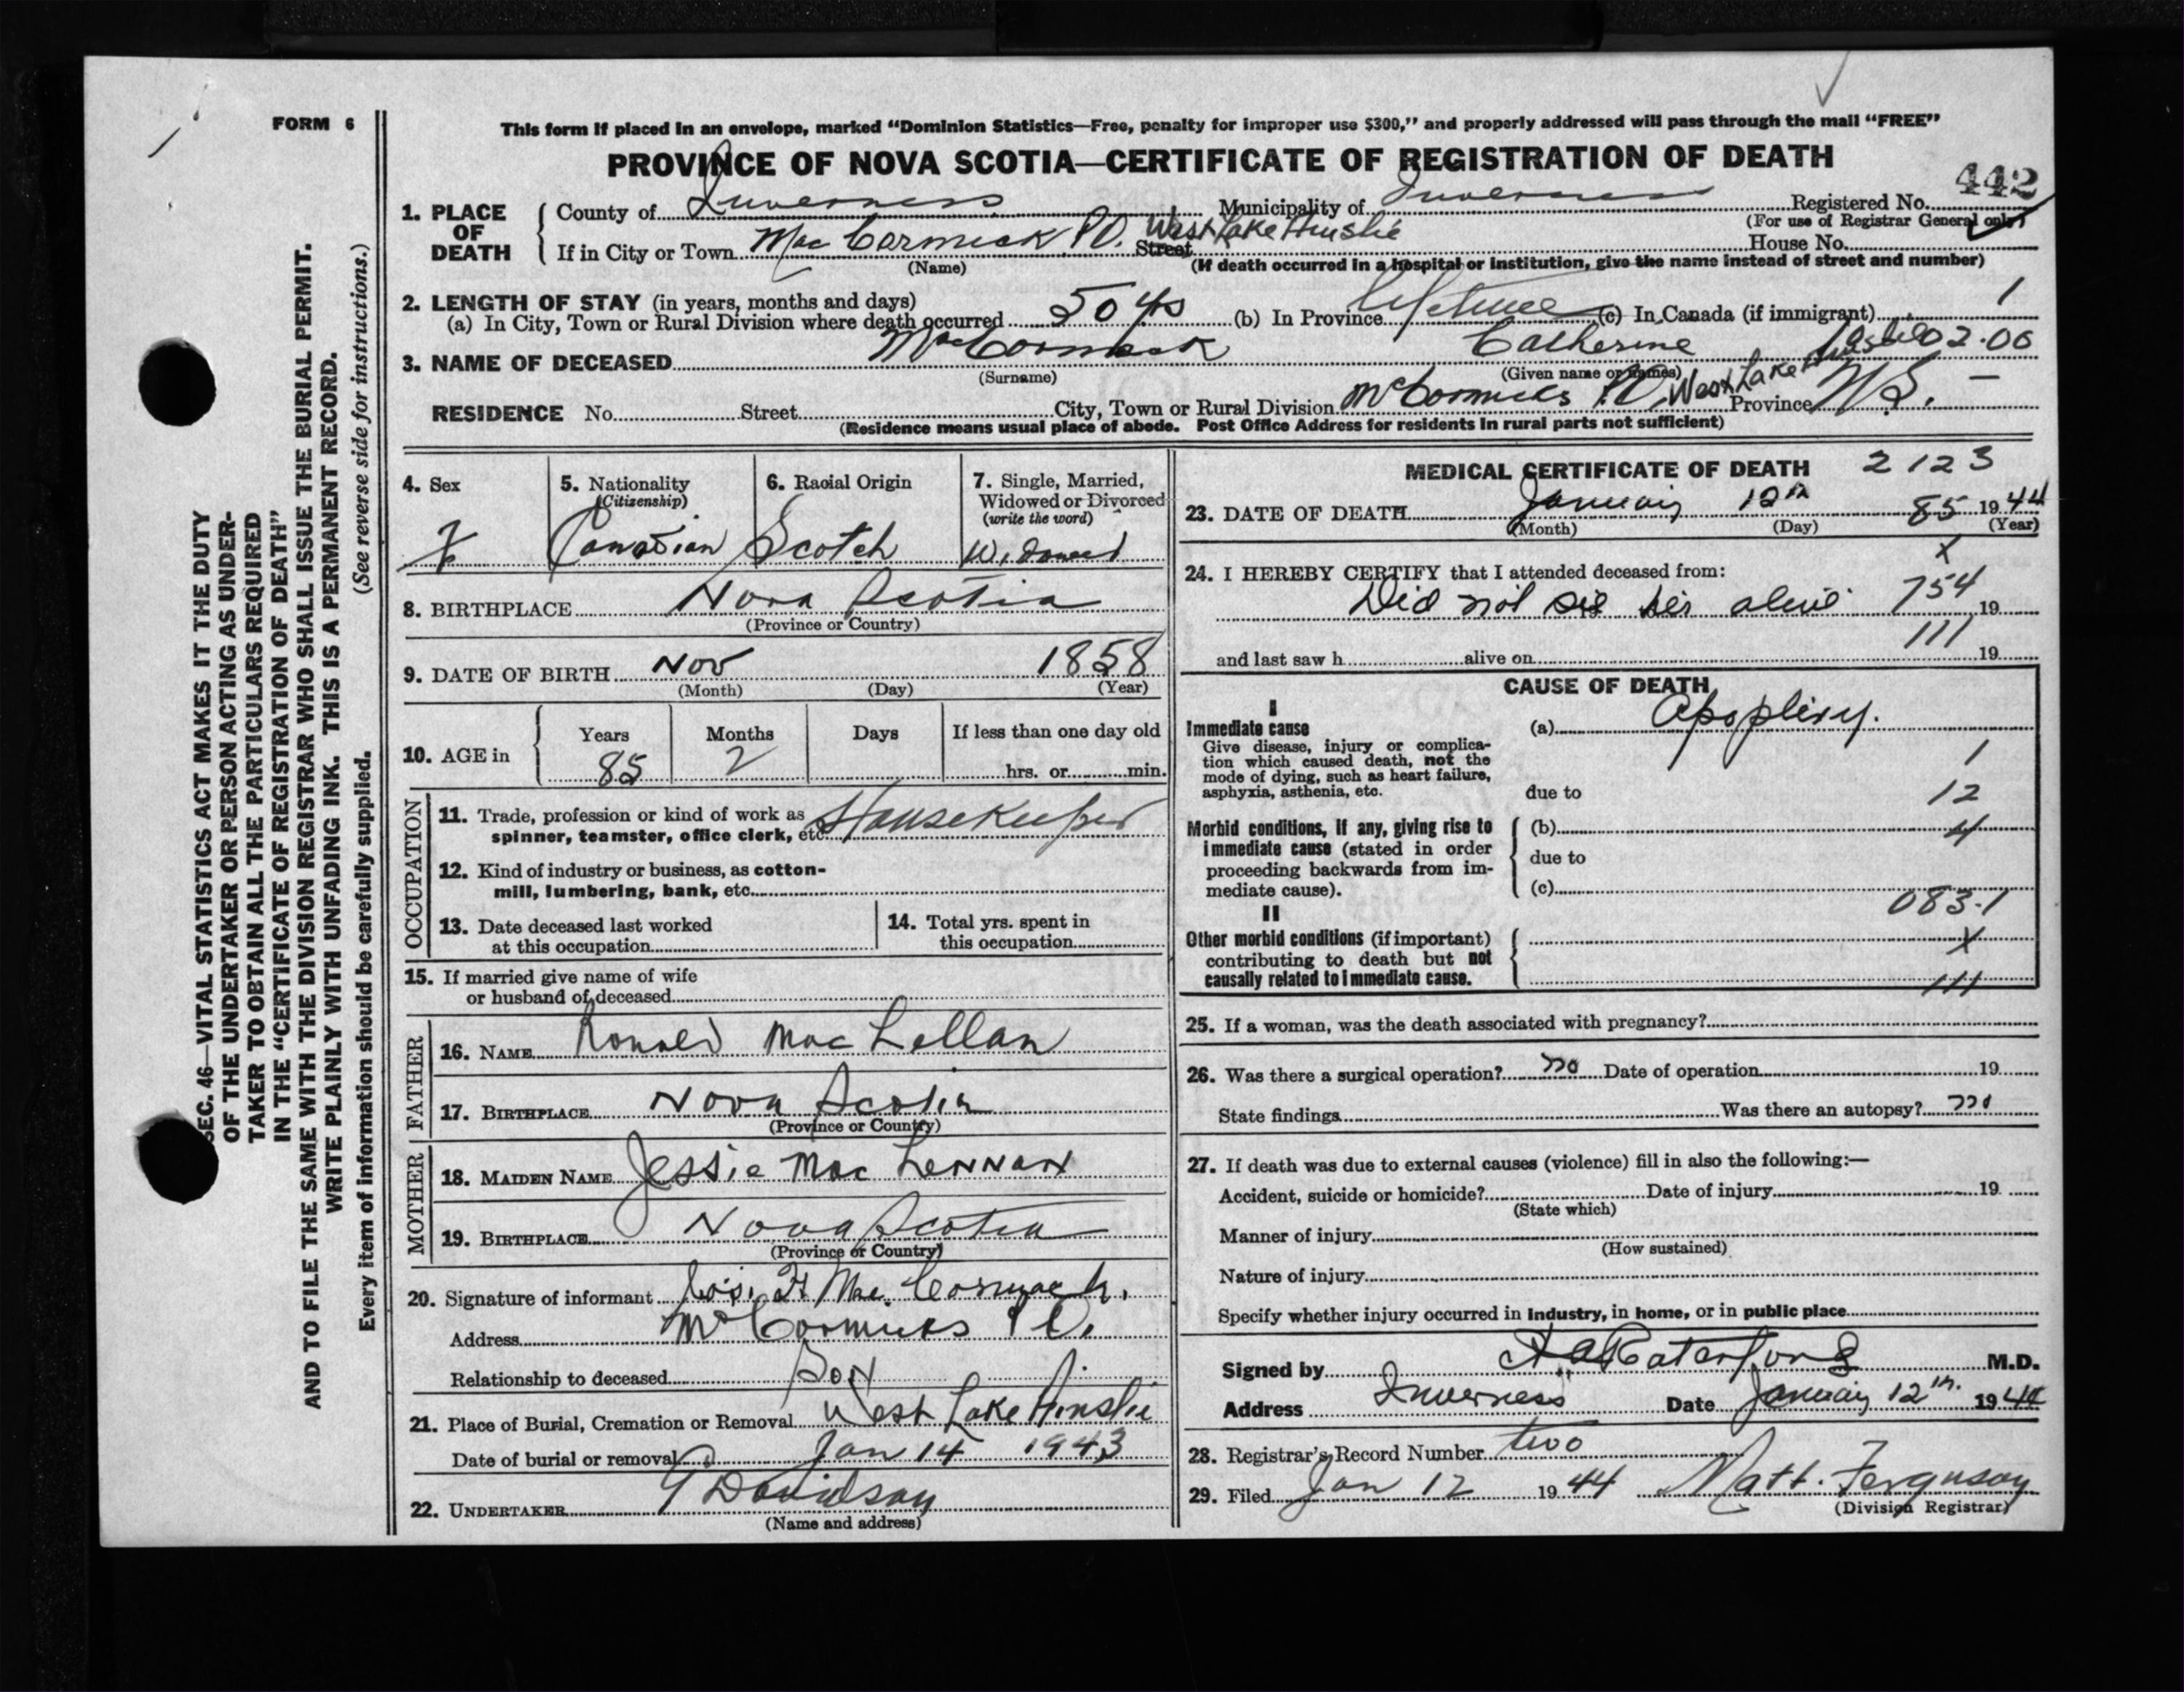 FORM 6
This form if placed in an envelope, marked "Dominion Statistics—Free, penalty for improper use $300," and properly addressed will pass through the mail "FREE"
PROVINCE OF NOVA SCOTIA—CERTIFICATE OF REGISTRATION OF DEATH
442
1. PLACE OF DEATH County of Inverness Municipality of Inverness Registered No.
(For use of Registrar General only)
If in City or Town Mac Cormack P.O. West Lake Ainslie Street House No.
(Name) (If death occurred in a hospital or institution, give the name instead of street and number)
2. LENGTH OF STAY (in years, months and days) 1
(a) In City, Town or Rural Division where death occurred 50 yrs (b) In Province Lifetime (c) In Canada (if immigrant)
3. NAME OF DECEASED MacCormack Catherine 02.06
(Surname) (Given name or names)
RESIDENCE No. Street City, Town or Rural Division McCormicks P.O. West Lake Ainslie Province N.S. —
(Residence means usual place of abode. Post Office Address for residents in rural parts not sufficient)
4. Sex 5. Nationality (Citizenship) 6. Racial Origin 7. Single, Married, Widowed or Divorced (write the word)
F Canadian Scotch Widowed
8. BIRTHPLACE Nova Scotia
(Province or Country)
9. DATE OF BIRTH Nov 1858
(Month) (Day) (Year)
10. AGE in Years Months Days If less than one day old
85 2 hrs. or min.
OCCUPATION
11. Trade, profession or kind of work as spinner, teamster, office clerk, etc. Housekeeper
12. Kind of industry or business, as cotton-
mill, lumbering, bank, etc.
13. Date deceased last worked at this occupation
14. Total yrs. spent in this occupation
15. If married give name of wife
or husband of deceased
FATHER
16. NAME Ronald MacLellan
17. BIRTHPLACE Nova Scotia
(Province or Country)
MOTHER
18. MAIDEN NAME Jessie MacLennan
19. BIRTHPLACE Nova Scotia
(Province or Country)
20. Signature of informant F Mac Cormack.
Address McCormicks P.O.
Relationship to deceased Son
21. Place of Burial, Cremation or Removal West Lake Ainslie
Date of burial or removal Jan 14 1943
22. UNDERTAKER Davidson
(Name and address)
MEDICAL CERTIFICATE OF DEATH 2123
23. DATE OF DEATH January 12th 85 1944
(Month) (Day) (Year)
X
24. I HEREBY CERTIFY that I attended deceased from:
Did not see her alive 754 19
111
and last saw h alive on 19
CAUSE OF DEATH
I
Immediate cause (a) Apoplexy.
Give disease, injury or complica-
tion which caused death, not the 1
mode of dying, such as heart failure,
asphyxia, asthenia, etc. due to 12
Morbid conditions, if any, giving rise to (b) 4
immediate cause (stated in order due to
proceeding backwards from im-
mediate cause). (c)
083.1
II
Other morbid conditions (if important) X
contributing to death but not
causally related to immediate cause. 111
25. If a woman, was the death associated with pregnancy?
26. Was there a surgical operation? no Date of operation 19
State findings Was there an autopsy? no
27. If death was due to external causes (violence) fill in also the following:—
Accident, suicide or homicide? Date of injury 19
(State which)
Manner of injury
(How sustained)
Nature of injury
Specify whether injury occurred in industry, in home, or in public place
Signed by M.D.
Address Inverness Date January 12th. 1944
28. Registrar's Record Number two
29. Filed Jan 12 1944 Matt. Ferguson
(Division Registrar)
SEC. 46—VITAL STATISTICS ACT MAKES IT THE DUTY
OF THE UNDERTAKER OR PERSON ACTING AS UNDER-
TAKER TO OBTAIN ALL THE PARTICULARS REQUIRED
IN THE "CERTIFICATE OF REGISTRATION OF DEATH"
AND TO FILE THE SAME WITH THE DIVISION REGISTRAR WHO SHALL ISSUE THE BURIAL PERMIT.
WRITE PLAINLY WITH UNFADING INK. THIS IS A PERMANENT RECORD.
Every item of information should be carefully supplied. (See reverse side for instructions.)